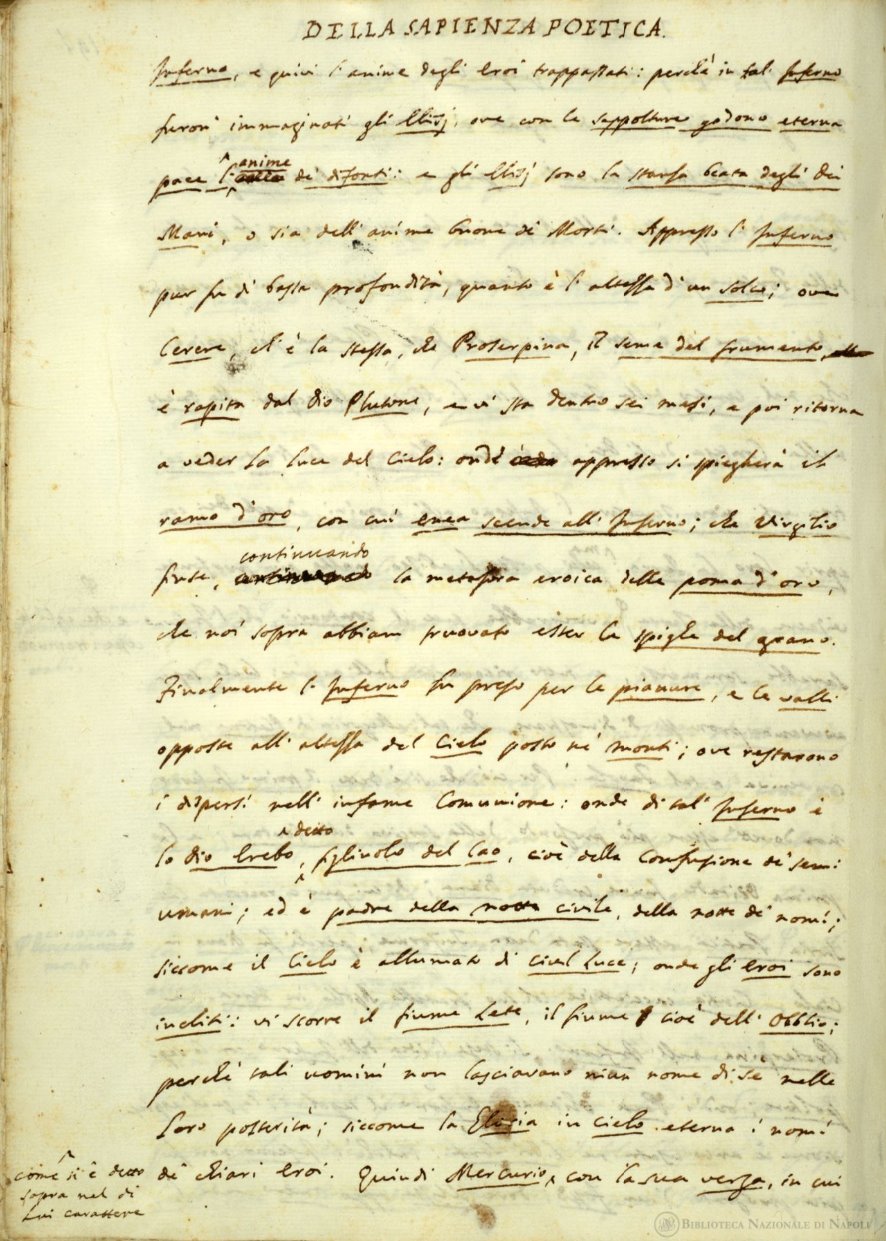 DELLA SAPIENZA POETICA.
Inferno, e quivi l'anime degli Eroi trappassati: perchè in tal Inferno
furon' immaginati gli Elisj, ove con le seppolture godono eterna
pace l'anime de' difonti: e gli Elisj sono la stanza beata degli Dei
Mani, o sia dell'anime buone de' Morti. Appresso l'Inferno
pur fu di bassa profondità, quanto è l'altezza d'un solco; ove
Cerere, ch'è la stessa, che Proserpina, il seme del frumento,
è rapita dal dio Plutone, e vi sta dentro sei mesi, e poi ritorna
a veder la luce del Cielo: onde appresso si spiegherà il
ramo d'oro, con cui Enea scende all'Inferno; che Virgilio
finse, continuando la metafora eroica delle poma d'oro,
che noi sopra abbiam truovato esser le spighe del grano.
Finalmente l'Inferno fu preso per le pianure, e le valli
opposte all'altezza del Cielo posto ne' monti; ove restavano
i dispersi nell'infame Comunione: onde di tal' Inferno è
lo dio Erebo, detto figliuolo del Cao, cioè della Confusione de' semi
umani; ed è padre della notte civile, della notte de' nomi;
siccome il Cielo è allumato di civil Luce; onde gli Eroi sono
incliti: vi scorre il fiume Lete, il fiume cioè dell'Obblio;
perchè tali uomini non lasciavano niun nome di sè nelle
loro posterità; siccome la Gloria in Cielo eterna i nomi
de' chiari Eroi. Quindi Mercurio, con la sua verga, in cui
come si è detto
sopra nel di
Lui carattere
BIBLIOTECA NAZIONALE DI NAPOLI